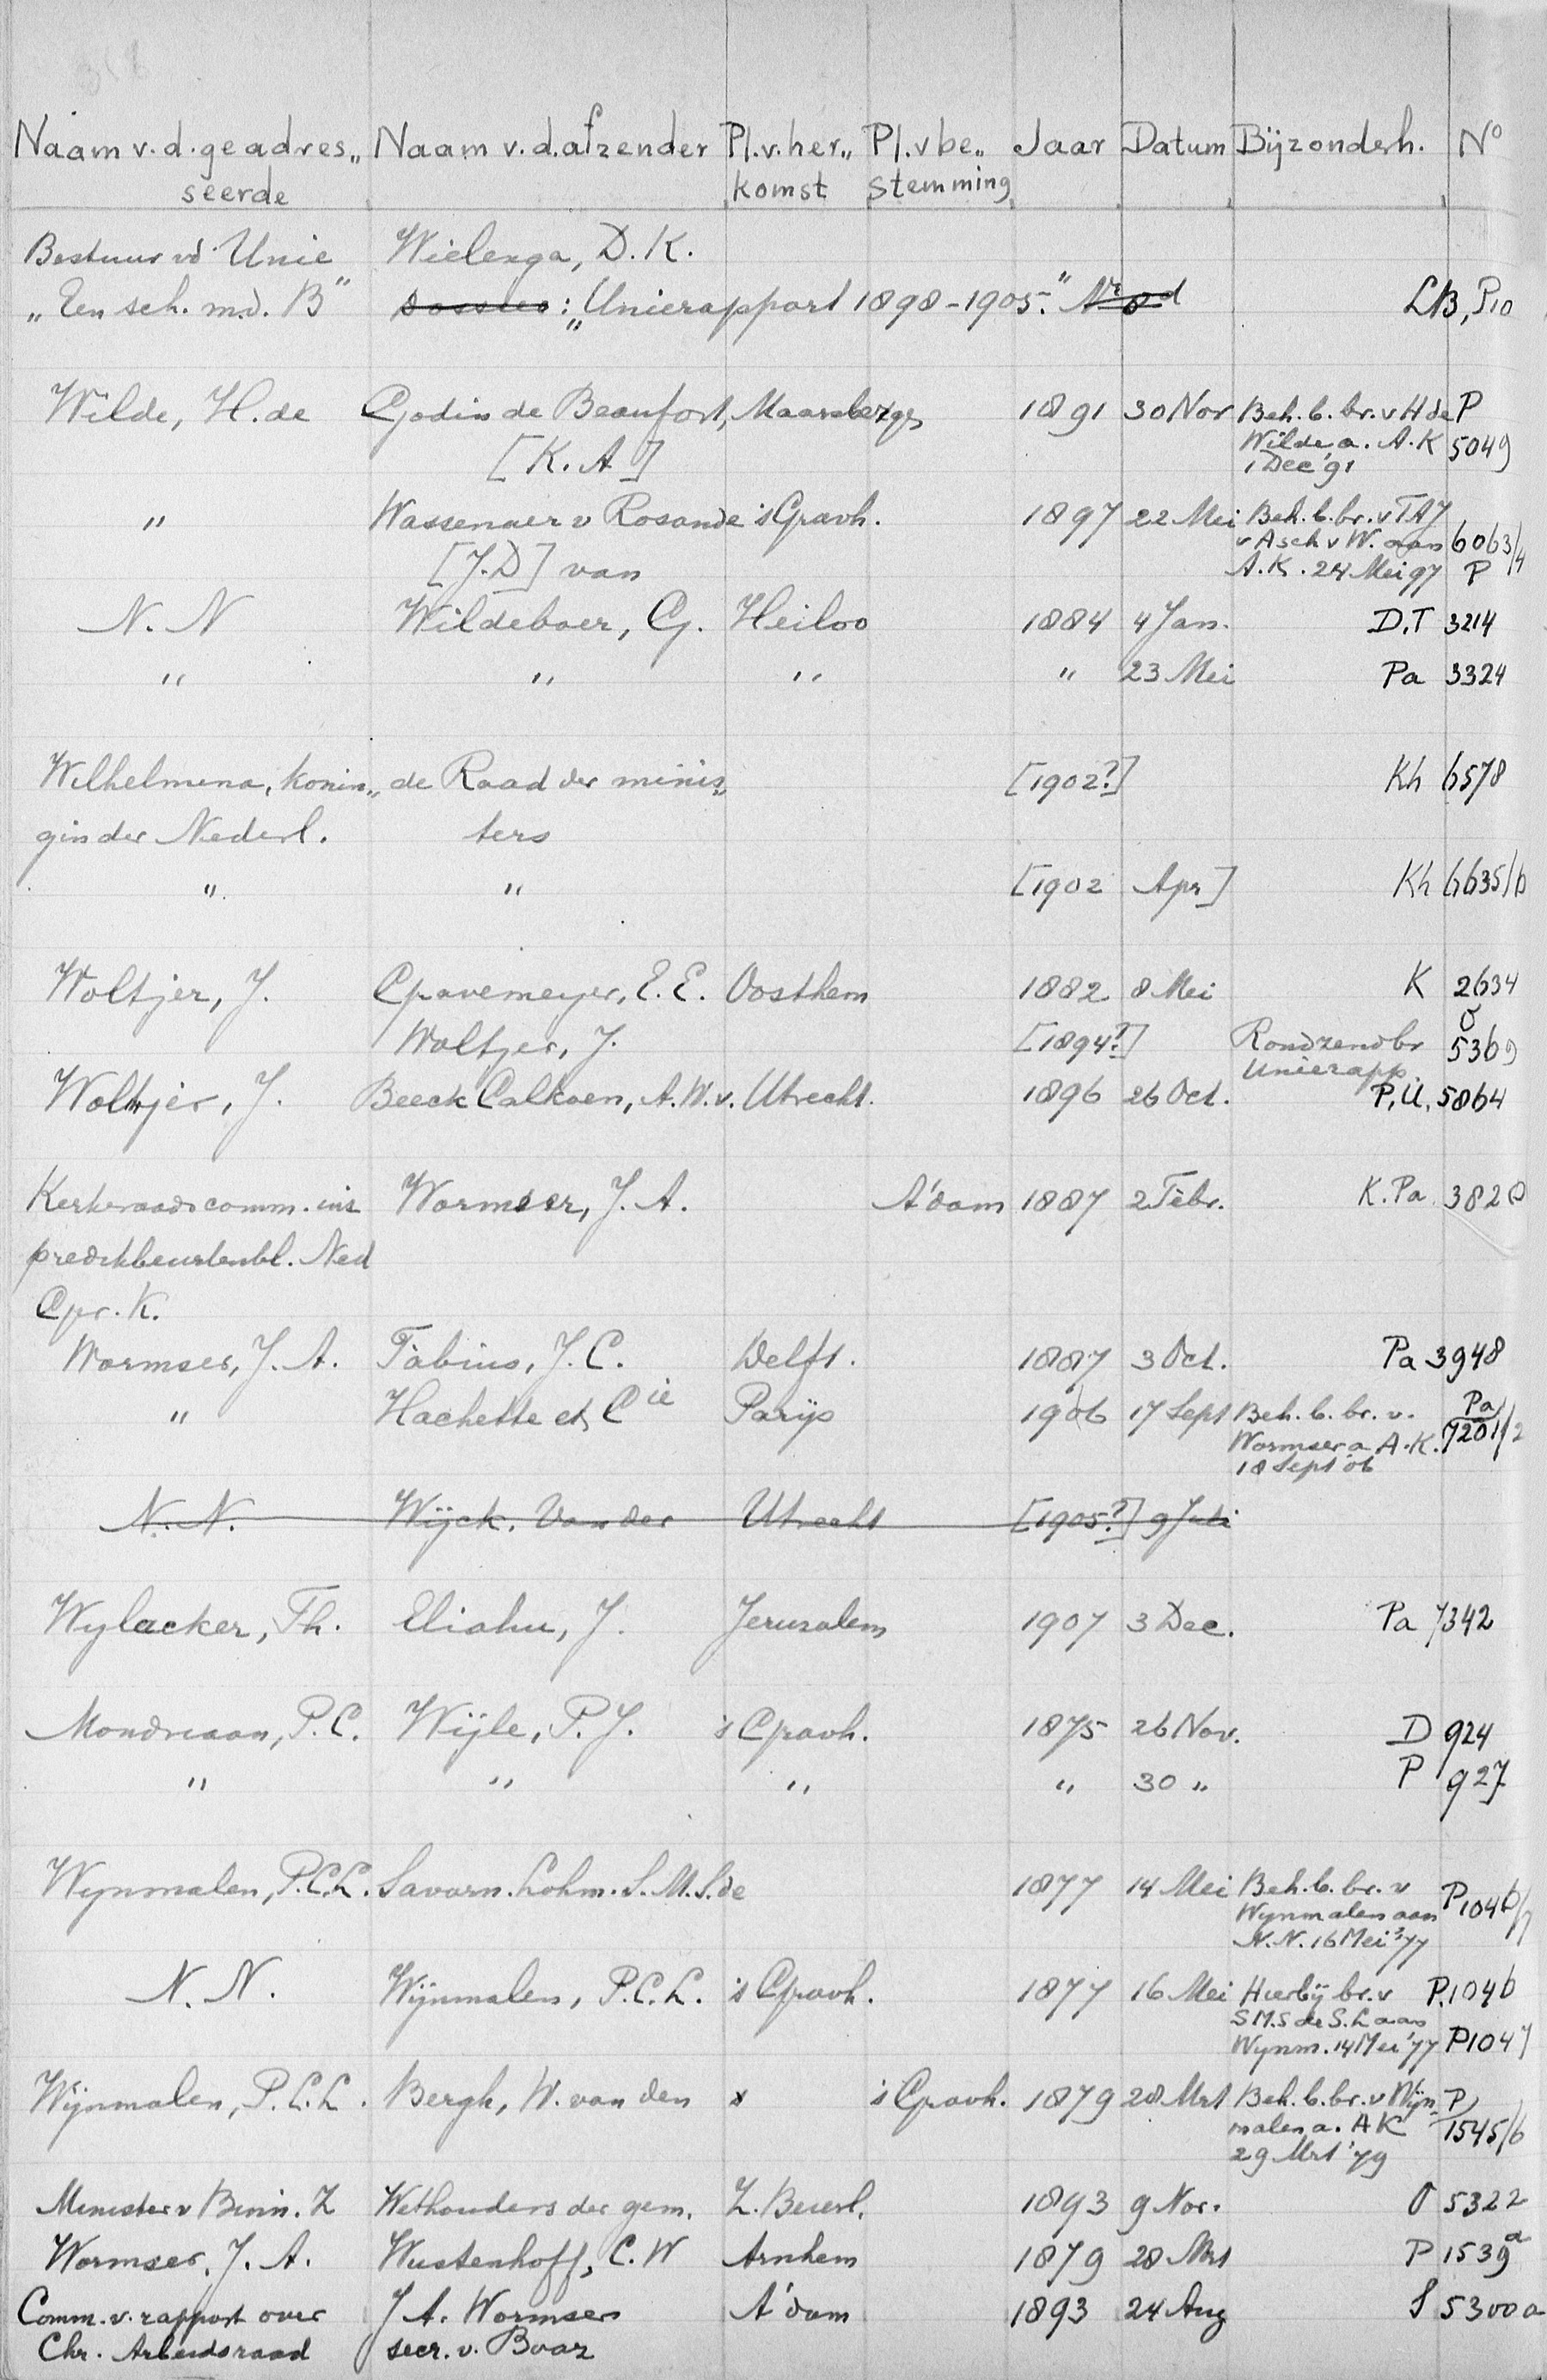 Naam v.d. geadres„ Naam v.d. afzender Pl. v. her„ Pl. v be„ Jaar Datum Bijzonderh. No
seerde komst stemming
Bestuur vd Unie Wielenga, D. K.
„Een sch. m.d. B" dossier: „Unierapport 1898-1905." LB, P10
Wilde, H. de Godin de Beaufort, Maarsbergen 1891 30 Nov Beh. b. br. v H de P
[K. A] Wilde a. A. K 5049
1 Dec '91
" Wassenaer v Rosande 's Gravh. 1897 22 Mei Beh. b. br. v TAJ
v Asch v W. aan 6063/4
[J.D] van A.K. 24 Mei 97 P
N. N Wildeboer, G. Heiloo 1884 4 Jan. D.T 3214
" " " " 23 Mei Pa 3324
Wilhelmina, konin„ de Raad der minis„ [1902?] Kh 6578
gin der Nederl. ters
" " [1902 Apr] Kh 6635/6
Woltjer, J. Gravemeyer, E. E. Oosthem 1882 8 Mei K 2634
O
Woltjer, J. [1894?] Rondzendbr 5369
Unierapp.
Woltjer, J. Beeck Calkoen, A. W. v. Utrecht. 1896 26 Oct. P. U. 5864
Kerkeraadscomm. inz Wormser, J. A. A'dam 1887 2 Febr. K. Pa 3828
predikbeurtenbl. Ned
Gr. K.
Wormser, J. A. Fabius, J. C. Delft. 1887 3 Oct. Pa 3948
" Hachette et Cie Parijs 1906 17 Sept Beh. b. br. v. Pa
Wormser a A.K. 7201/2
18 Sept 06
N. N. Wijck. Van der Utrecht [1905?] 9 Juli
Wylacker, Th. Eliahu, J. Jerusalem 1907 3 Dec. Pa 7342
Mondriaan, P. C. Wijle, P. J. 's Gravh. 1875 26 Nov. D 924
" " " " 30 " P 927
Wynmalen, P.C.L. Savorn. Lohm. S. M. S. de 1877 14 Mei Beh. b. br. v P1046/7
Wynmalen aan
N. N. 16 Mei '77
N. N. Wijnmalen, P.C.L. 's Gravh. 1877 16 Mei Hierbij br. v P.1046
S M.S de S. L aan
Wynm. 14 Mei '77 P1047
Wijnmalen, P.C.L. Bergh, W. van den x 's Gravh. 1879 28 Mrt Beh. b. br. v Wijn„ P
malen a. AK 1545/6
29 Mrt '79
Minister v Binn. Z Wethouders der gem. Z. Beierl. 1893 9 Nov. O 5322
Wormser, J. A. Wustenhoff, C. W Arnhem 1879 28 Mrt P 1539a
Comm. v. rapport over J A. Wormser A'dam 1893 24 Aug S 5300a
Chr. Arbeidsraad secr. v. Boaz